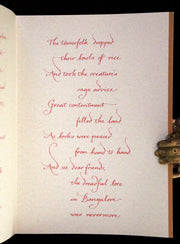 The townsfolk dropped
their bowls of rice
And took the creature's
sage advice
Great contentment
filled the land
As books were passed
from hand to hand
And so, dear friends,
the dreadful bore
in Bangalore
was nevermore